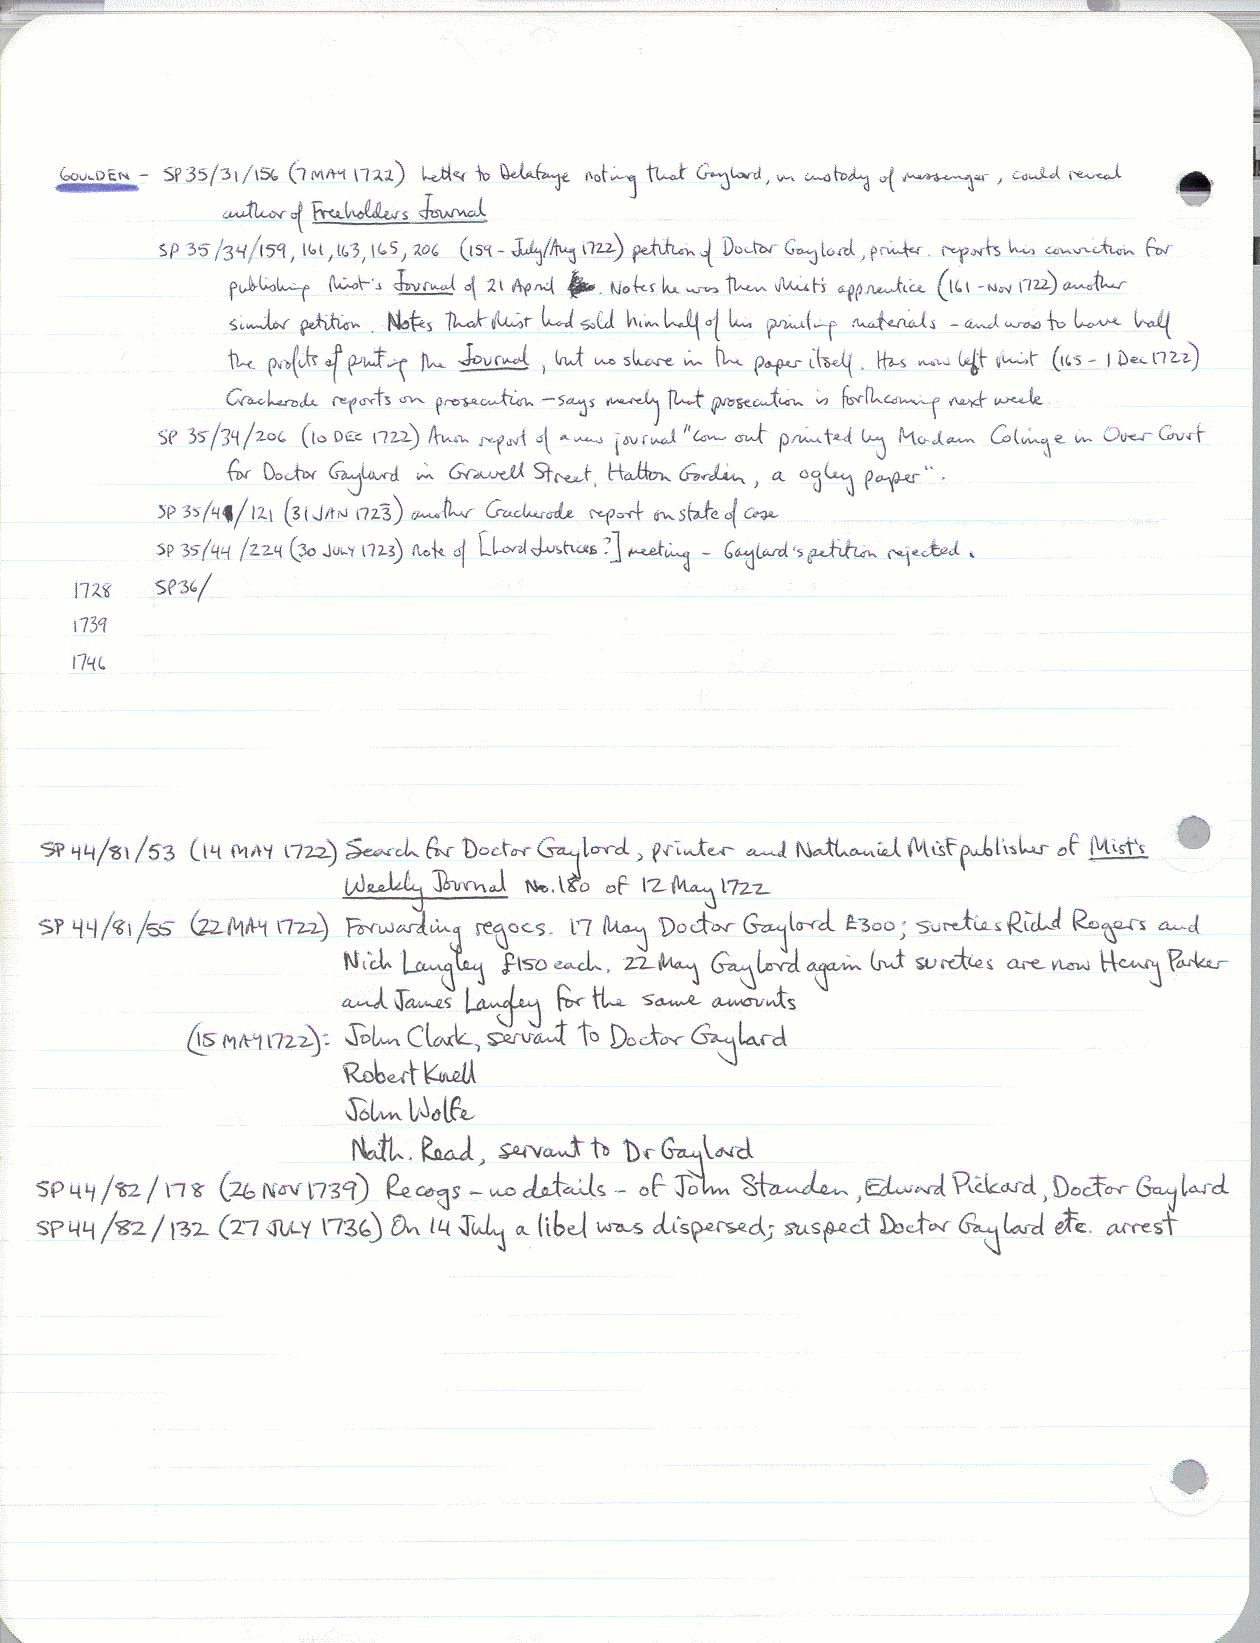 GOULDEN - SP35/31/156 (7 MAY 1722) Letter to Delafaye noting that Gaylard, in custody of messenger, could reveal
author of Freeholders Journal
SP 35/34/159, 161, 163, 165, 206 (159 - July/Aug 1722) petition of Doctor Gaylard, printer. reports his conviction for
publishing Mist's Journal of 21 April. Notes he was then Mist's apprentice (161 - Nov 1722) another
similar petition. Notes that Mist had sold him half of his printing materials - and was to have half
the profits of printing the Journal, but no share in the paper itself. Has now left Mist (165 - 1 Dec 1722)
Cracherode reports on prosecution - says merely that prosecution is forthcoming next week
SP 35/34/206 (10 DEC 1722) Anon report of a new journal "Com out printed by Madam Colinge in Over Court
for Doctor Gaylard in Gravell Street, Hatton Garden, a ogley paper".
SP 35/41/121 (31 JAN 1723) another Cracherode report on state of case
SP 35/44/224 (30 JULY 1723) note of [Lord Justices?] meeting - Gaylard's petition rejected.
1728 SP36/
1739
1746
SP 44/81/53 (14 MAY 1722) Search for Doctor Gaylord, printer and Nathaniel Mist publisher of Mist's
Weekly Journal No. 180 of 12 May 1722
SP 44/81/55 (22 MAY 1722) Forwarding regocs. 17 May Doctor Gaylord £300; sureties Richd Rogers and
Nich Langley £150 each. 22 May Gaylord again but sureties are now Henry Parker
and James Langley for the same amounts
(15 MAY 1722): John Clark, servant to Doctor Gaylard
Robert Knell
John Wolfe
Nath. Read, servant to Dr Gaylord
SP44/82/178 (26 NOV 1739) Recogs - no details - of John Standen, Edward Pickard, Doctor Gaylard
SP44/82/132 (27 JULY 1736) On 14 July a libel was dispersed; suspect Doctor Gaylard etc. arrest